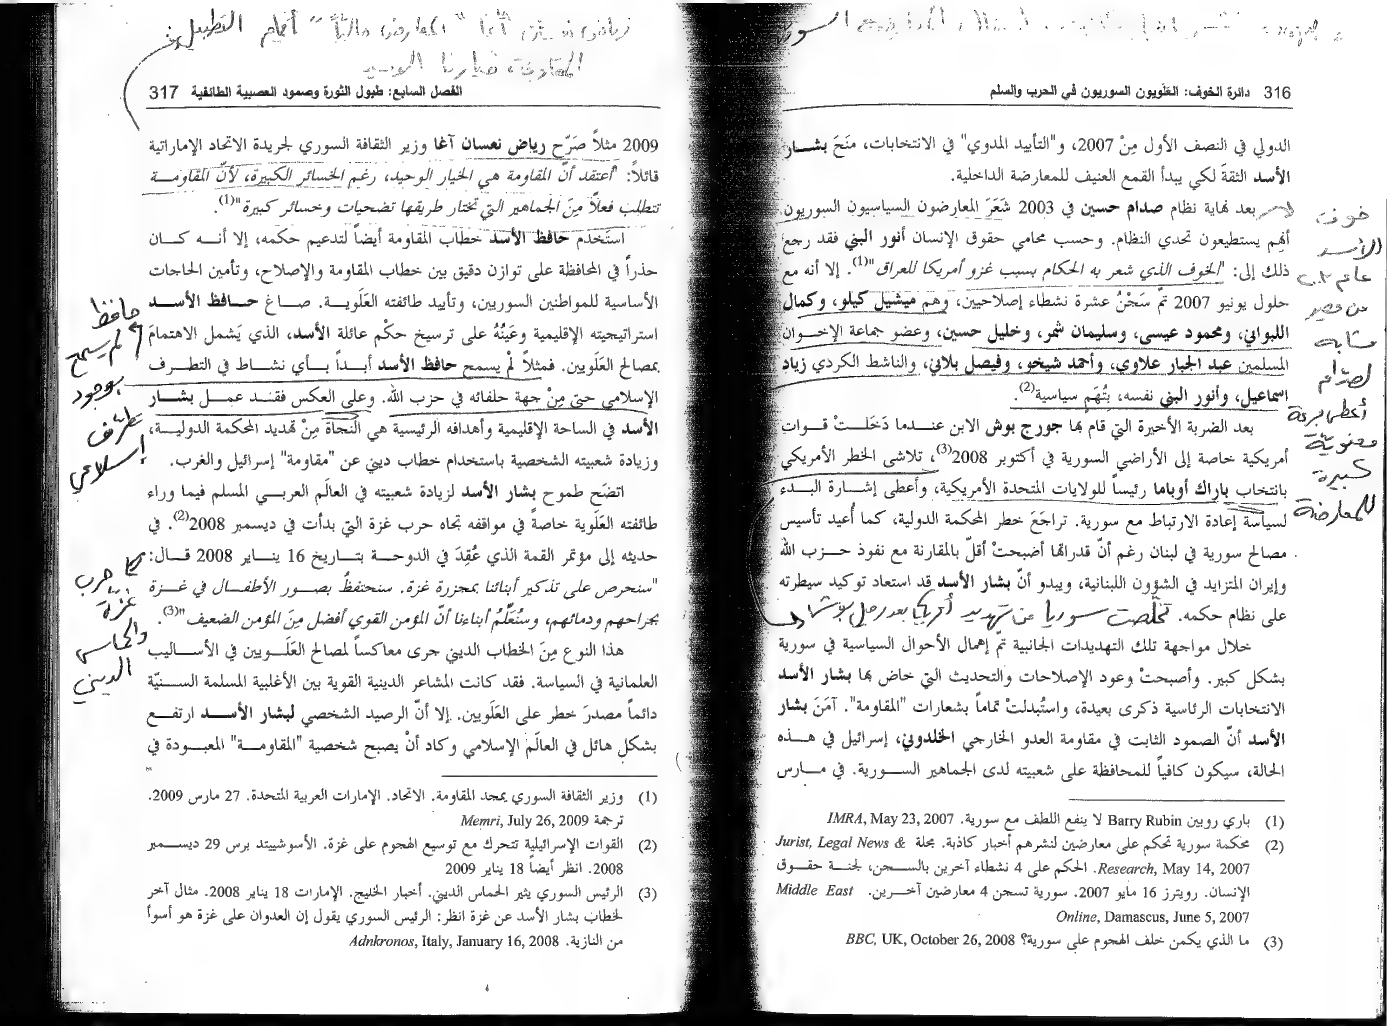 316 دائرة الخوف: العَلَويون السوريون في الحرب والسلم
الدولي في النصف الأول مِنْ 2007، و"التأييد المدوي" في الانتخابات، منَحَ بشـــار
الأسد الثقةَ لكي يبدأ القمع العنيف للمعارضة الداخلية.
بعد نهاية نظام صدام حسين في 2003 شَعَرَ المعارضون السياسيون السوريون
أنّهم يستطيعون تحدي النظام. وحسب محامي حقوق الإنسان أنور البني فقد رجع
ذلك إلى: "الخوف الذي شعر به الحكام بسبب غزو أمريكا للعراق"(1). إلا أنه مع
حلول يونيو 2007 تمّ سَجْنُ عشرة نشطاء إصلاحيين، وهم ميشيل كيلو، وكمال
اللبواني، ومحمود عيسى، وسليمان شمر، وخليل حسين، وعضو جماعة الإخــوان
المسلمين عبد الجبار علاوي، وأحمد شيخو، وفيصل بلاني، والناشط الكردي زياد
إسماعيل، وأنور البني نفسه، بتُهَمٍ سياسية(2).
بعد الضربة الأخيرة التي قام بها جورج بوش الابن عنـدما دَخَلَـتْ قـوات
أمريكية خاصة إلى الأراضي السورية في أكتوبر 2008(3)، تلاشى الخطر الأمريكي
بانتخاب باراك أوباما رئيساً للولايات المتحدة الأمريكية، وأعطى إشـارة البـدء
لسياسة إعادة الارتباط مع سورية. تراجَعَ خطر المحكمة الدولية، كما أُعيد تأسيس
مصالح سورية في لبنان رغم أنّ قدراتها أضبحتْ أقلّ بالمقارنة مع نفوذ حـزب الله
وإيران المتزايد في الشؤون اللبنانية، ويبدو أنّ بشار الأسد قد استعاد توكيد سيطرته
على نظام حكمه. تخلّصت سوريا من تهديد أمريكا بعد رحيل بوش
خلال مواجهة تلك التهديدات الجانبية تمّ إهمال الأحوال السياسية في سورية
بشكل كبير. وأصبحتْ وعود الإصلاحات والتحديث التي خاض بها بشار الأسد
الانتخابات الرئاسية ذكرى بعيدة، واستُبدلتْ تماماً بشعارات "المقاومة". آمَنَ بشار
الأسد أنّ الصمود الثابت في مقاومة العدو الخارجي الخلدوني، إسرائيل في هـــذه
الحالة، سيكون كافياً للمحافظة على شعبيته لدى الجماهير السـورية. في مــارس
(1) باري روبين Barry Rubin لا ينفع اللطف مع سورية. IMRA, May 23, 2007
(2) محكمة سورية تحكم على معارضين لنشرهم أخبار كاذبة. مجلة Jurist, Legal News &
Research, May 14, 2007. الحكم على 4 نشطاء آخرين بالسـجن، لجنـة حقـوق
الإنسان. رويترز 16 مايو 2007. سورية تسجن 4 معارضين آخـرين. Middle East
Online, Damascus, June 5, 2007
(3) ما الذي يكمن خلف الهجوم على سورية؟ BBC, UK, October 26, 2008
خوف
الأسد
عام
من مصير
مشابه
لصدّام
أعطى جرعة
معنوية
كبيرة
للمعارضة
الفصل السابع: طبول الثورة وصمود العصبية الطائفية 317
2009 مثلاً صَرّح رياض نعسان آغا وزير الثقافة السوري لجريدة الاتحاد الإماراتية
قائلاً: "أعتقد أنّ المقاومة هي الخيار الوحيد، رغم الخسائر الكبيرة، لأنّ المقاومـــة
تتطلب فعلاً مِنَ الجماهير التي تختار طريقها تضحيات وخسائر كبيرة"(1).
استَخدم حافظ الأسد خطاب المقاومة أيضاً لتدعيم حكمه، إلا أنــه كــان
حذراً في المحافظة على توازن دقيق بين خطاب المقاومة والإصلاح، وتأمين الحاجات
الأساسية للمواطنين السوريين، وتأييد طائفته العَلَوية. صـاغ حـافظ الأسـد
استراتيجيته الإقليمية وعَينُهُ على ترسيخ حكْم عائلة الأسد، الذي يَشمل الاهتمامَ
بمصالح العَلَويين. فمثلاً لمْ يسمح حافظ الأسد أبـداً بـأي نشـاط في التطـرف
الإسلامي حتى مِنْ جهة حلفائه في حزب الله. وعلى العكس فقـد عمـل بشار
الأسد في الساحة الإقليمية وأهدافه الرئيسية هي النجاة مِنْ تهديد المحكمة الدوليـة،
وزيادة شعبيته الشخصية باستخدام خطاب ديني عن "مقاومة" إسرائيل والغرب.
اتضَح طموح بشار الأسد لزيادة شعبيته في العالَم العربي المسلم فيما وراء
طائفته العَلَوية خاصةً في مواقفه تجاه حرب غزة التي بدأت في ديسمبر 2008(2). في
حديثه إلى مؤتمر القمة الذي عُقِدَ في الدوحة بتـاريخ 16 ينـاير 2008 قـال:
"سنحرص على تذكير أبنائنا بمجزرة غزة. سنحتفظُ بصـور الأطفـال في غـزة
بجراحهم ودمائهم، وسنُعَلّمُ أبناءَنا أنّ المؤمن القوي أفضل مِنَ المؤمن الضعيف"(3).
هذا النوع مِنَ الخطاب الديني جرى معاكساً لمصالح العَلَـويين في الأسـاليب
العلمانية في السياسة. فقد كانت المشاعر الدينية القوية بين الأغلبية المسلمة السـنيّة
دائماً مصدرَ خطر على العَلَويين. إلا أنّ الرصيد الشخصي لبشار الأسـد ارتفـع
بشكل هائل في العالَم الإسلامي وكاد أنْ يصبح شخصية "المقاومــة" المعبـودة في
(1) وزير الثقافة السوري يمجد المقاومة. الاتحاد. الإمارات العربية المتحدة. 27 مارس 2009.
ترجمة Memri, July 26, 2009
(2) القوات الإسرائيلية تتحرك مع توسيع الهجوم على غزة. الأسوشييتد برس 29 ديسـمبر
2008. انظر أيضاً 18 يناير 2009
(3) الرئيس السوري يثير الحماس الديني. أخبار الخليج. الإمارات 18 يناير 2008. مثال آخر
لخطاب بشار الأسد عن غزة انظر: الرئيس السوري يقول إن العدوان على غزة هو أسوأ
من النازية. Adnkronos, Italy, January 16, 2008
حافظ
لم يسمح
بوجود
تطرّف
إسلامي
حرب
غزة
والحماس
الديني